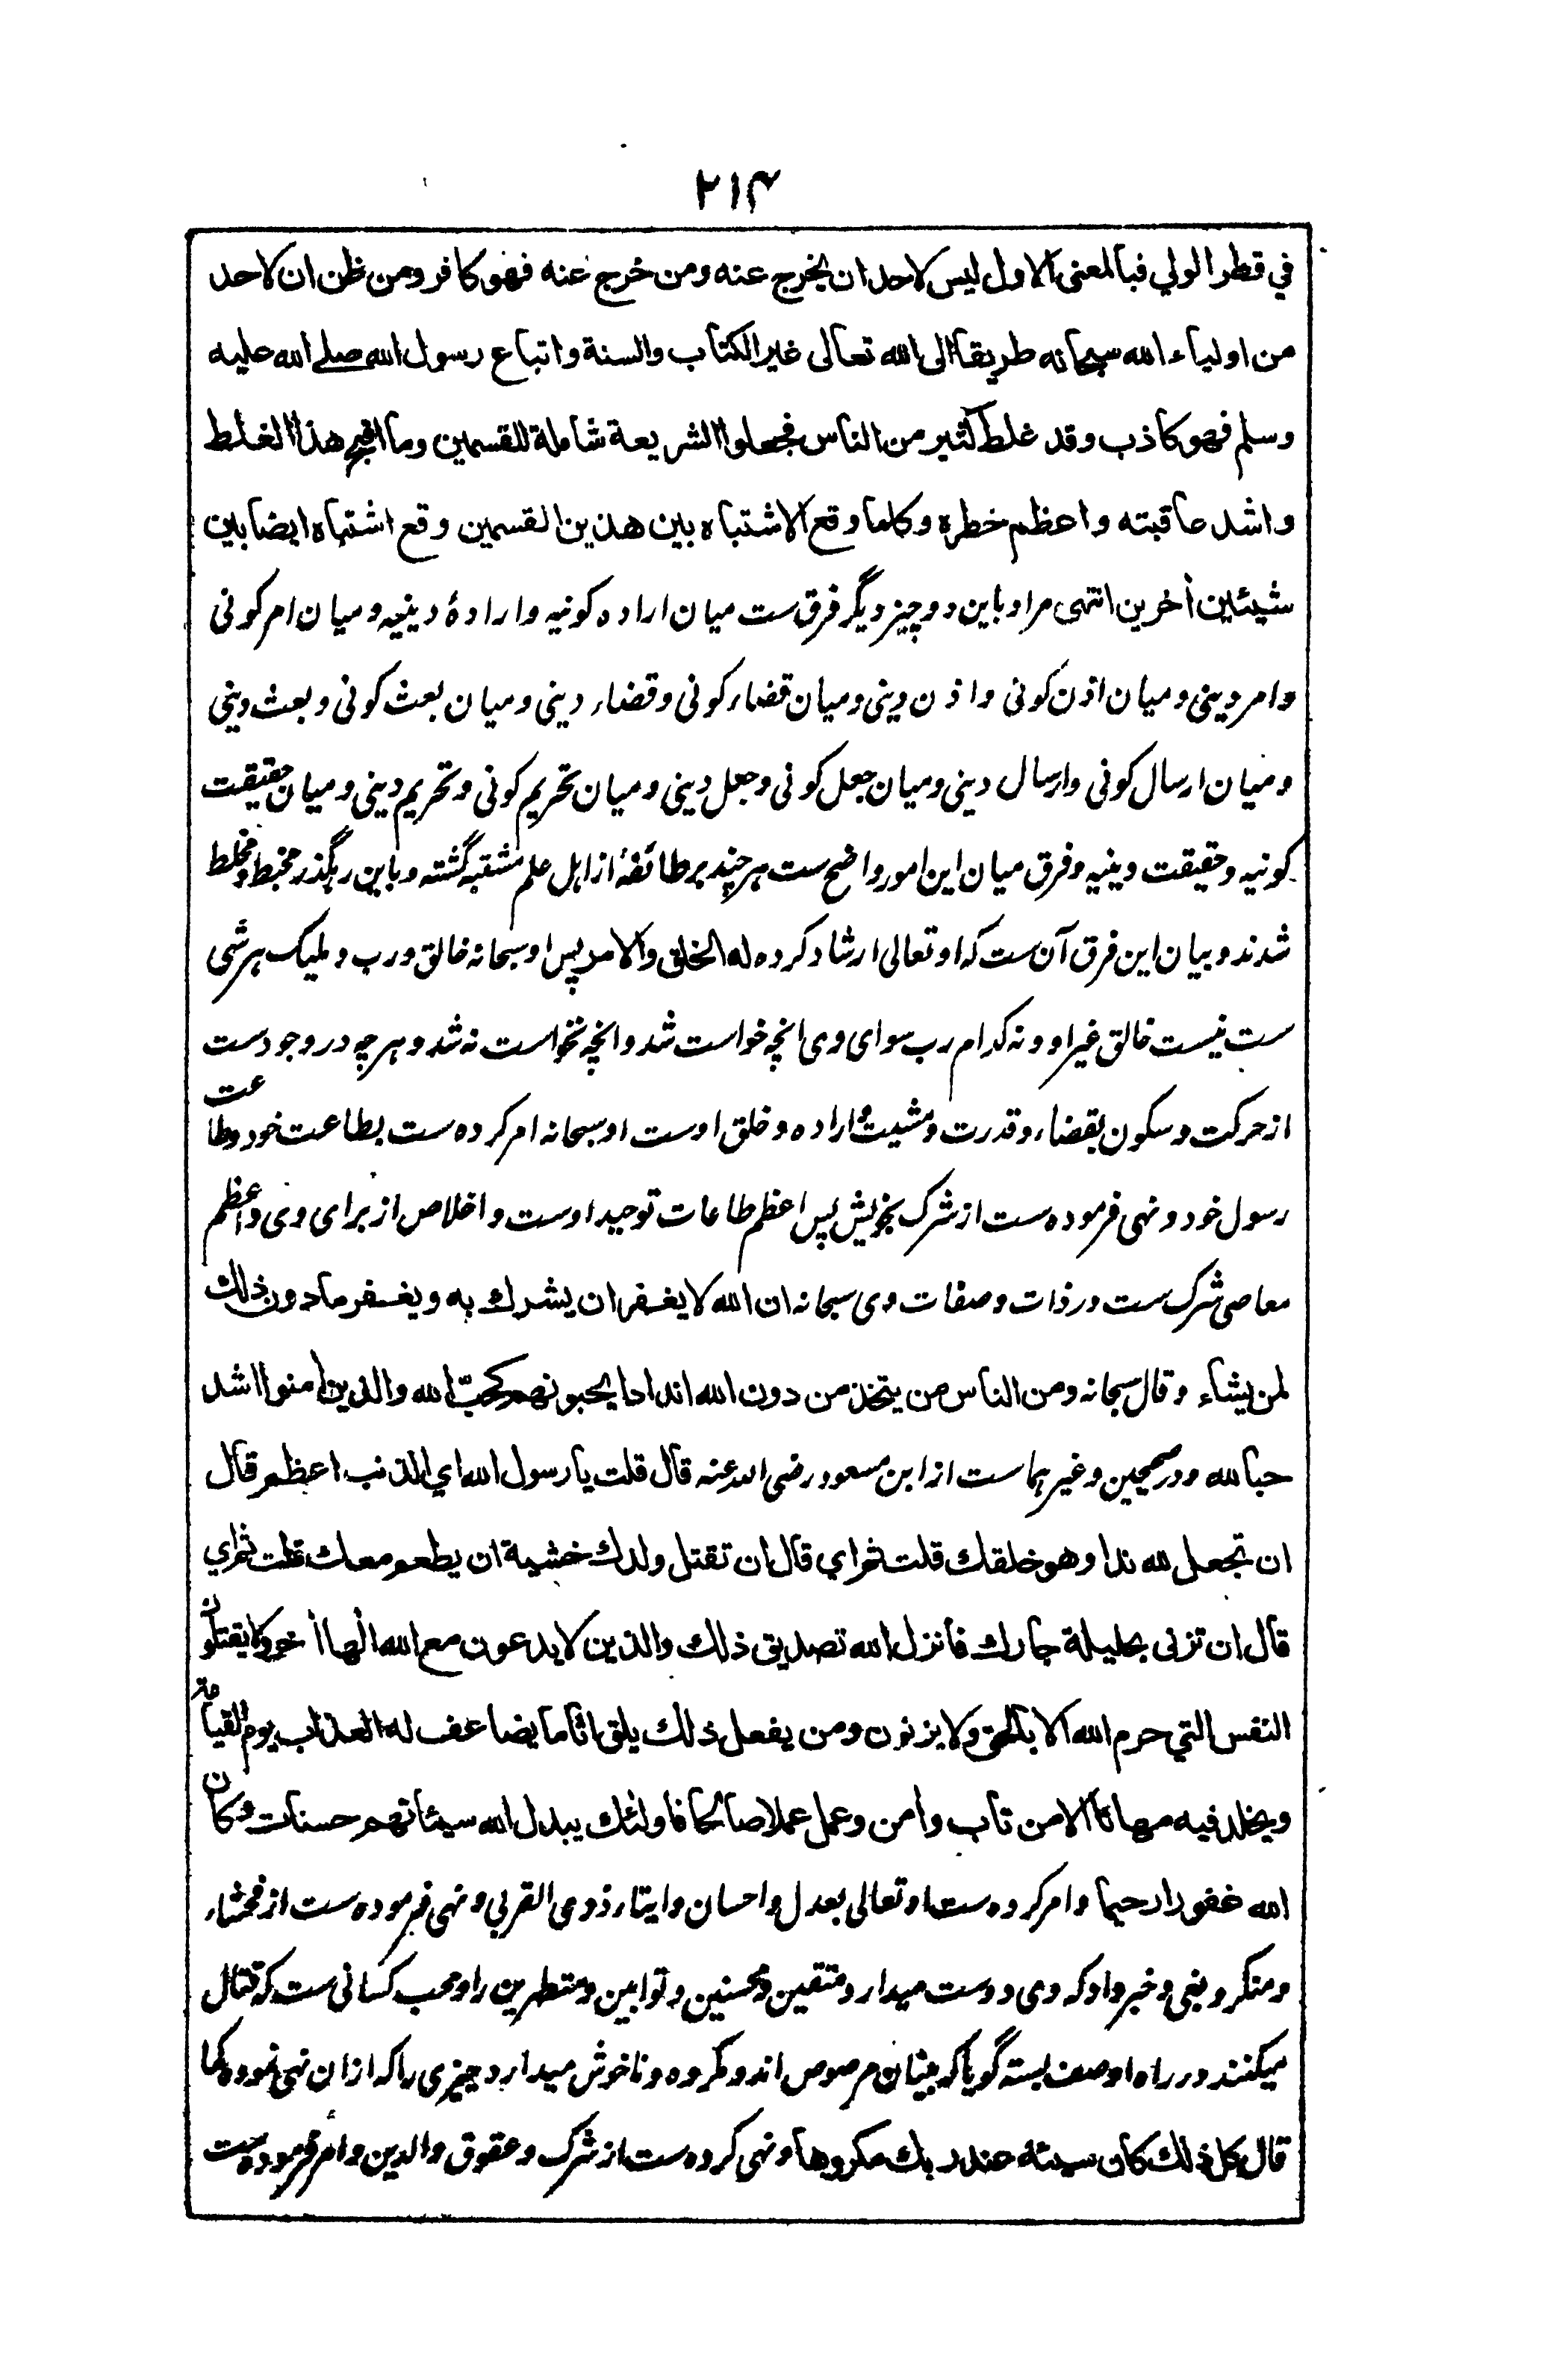 ۲۱۴
في قطر الولي فبالمعنى الاول ليس لاحد ان يخرج عنه ومن خرج عنه فهو كافر ومن ظن ان لاحد
من اولياء الله سبحانه طريقا الى الله تعالى غير الكتاب والسنة واتباع رسول الله صلے الله عليه
وسلم فهو كاذب وقد غلط كثير من الناس فجعلوا الشريعة شاملة للقسمين وما اقبح هذا الغلط
واشد عاقبته واعظم خطره وكلما وقع الاشتباه بين هذين القسمين وقع اشتباه ايضا بين
شيئين أخرين انتهى مراد باین دو چیز دیگر فرق ست میان اراده کونیه و ارادۀ دینیه و میان امر کونی
و امر دینی و میان اذن کونی و اذن دینی و میان قضاء کونی و قضاء دینی و میان بعث کونی و بعث دینی
و میان ارسال کونی و ارسال دینی و میان جعل کونی و جعل دینی و میان تحریم کونی و تحریم دینی و میان حقیقت
کونیه و حقیقت دینیه و فرق میان این امور واضح ست هر چند بر طائفۀ از اهل علم مشتبه گشته و باین رهگذر مخبط و مخلط
شدند و بیان این فرق آن ست که او تعالی ارشاد کرده له الخلق والامر پس او سبحانه خالق و رب و ملیک هر شی
ست نیست خالق غیر او و نه کدام رب سوای وی انچه خواست شد و انچه نخواست نه شد و هر چه در وجود ست
از حرکت و سکون بقضاء و قدرت و مشیت و اراده و خلق اوست او سبحانه امر کرده ست بطاعت خود و طاعت
رسول خود و نهی فرموده ست از شرک بخویش پس اعظم طاعات توحید اوست و اخلاص از برای وی و اعظم
معاصی شرک ست در ذات و صفات وی سبحانه ان الله لا يغفر ان يشرك به ويغفر ما دون ذلك
لمن يشاء و قال سبحانه ومن الناس من يتخذ من دون الله اندادا يحبونهم كحبّ الله والذين أمنوا اشد
حبا لله و در صحیحین و غیرهما ست از ابن مسعود رضی الله عنه قال قلت يا رسول الله اي الذنب اعظم قال
ان تجعل لله ندا وهو خلقك قلت ثم اي قال ان تقتل ولدك خشية ان يطعم معك قلت ثم اي
قال ان تزني بحليلة جارك فانزل الله تصديق ذلك والذين لا يدعون مع الله الها أخر ولا يقتلون
النفس التي حرم الله الا بالحق ولا يزنون ومن يفعل ذلك يلق اثاما يضاعف له العذاب يوم القيامة
ويخلد فيه مهانا الا من تاب وأمن وعمل عملا صالحا فاولئك يبدل الله سيئاتهم حسنات وكان
الله غفورا رحيما و امر کرده ست او تعالی بعدل و احسان و ایتاء ذوی القربی و نهی فرموده ست از فحشاء
و منکر و بغی و خبر داد که وی دوست میدارد متقین و محسنین و توابین و متطهرین را و محب کسانی ست که قتال
میکنند در راه او صف بسته گویا که بنیان مرصوص اند و مکروه و ناخوش میدارد چیزی را که ازان نهی نموده کما
قال كل ذلك كان سيئه عند ربك مكروها و نهی کرده ست از شرک و عقوق والدین و امر فرموده ست